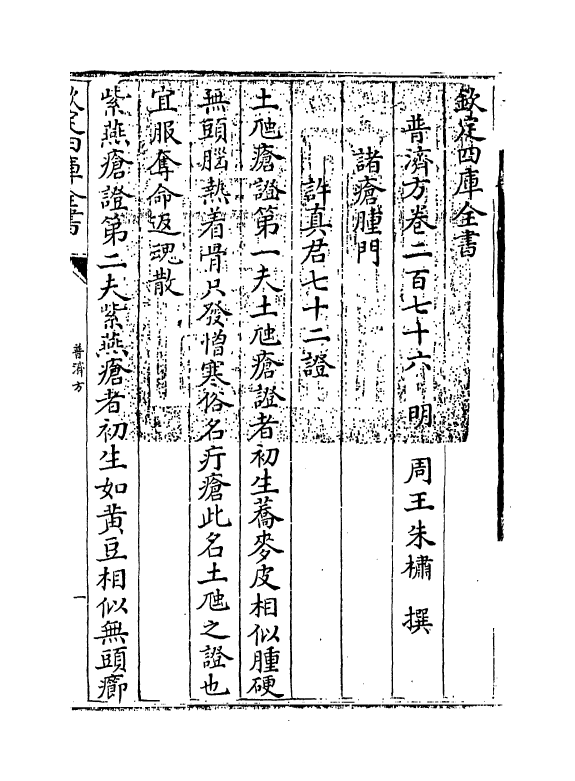 欽定四庫全書
普濟方卷二百七十六 明 周王朱橚 撰
諸瘡腫門
許真君七十二證
土虺瘡證第一夫土虺瘡證者初生蕎麥皮相似腫硬
無頭腦熱着骨只發憎寒俗名疔瘡此名土虺之證也
宜服奪命返魂散
紫燕瘡證第二夫紫燕瘡者初生如黃豆相似無頭癤
欽定四庫全書
普濟方
一